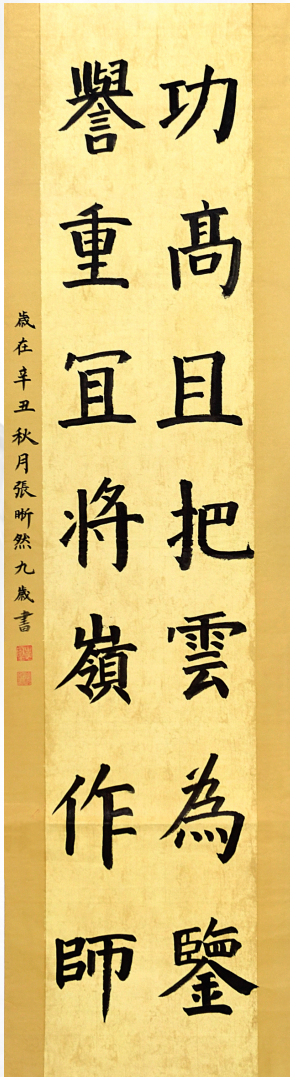 功高且把雲為鑒
譽重宜將嶺作師
歲在辛丑秋月張晰然九歲書